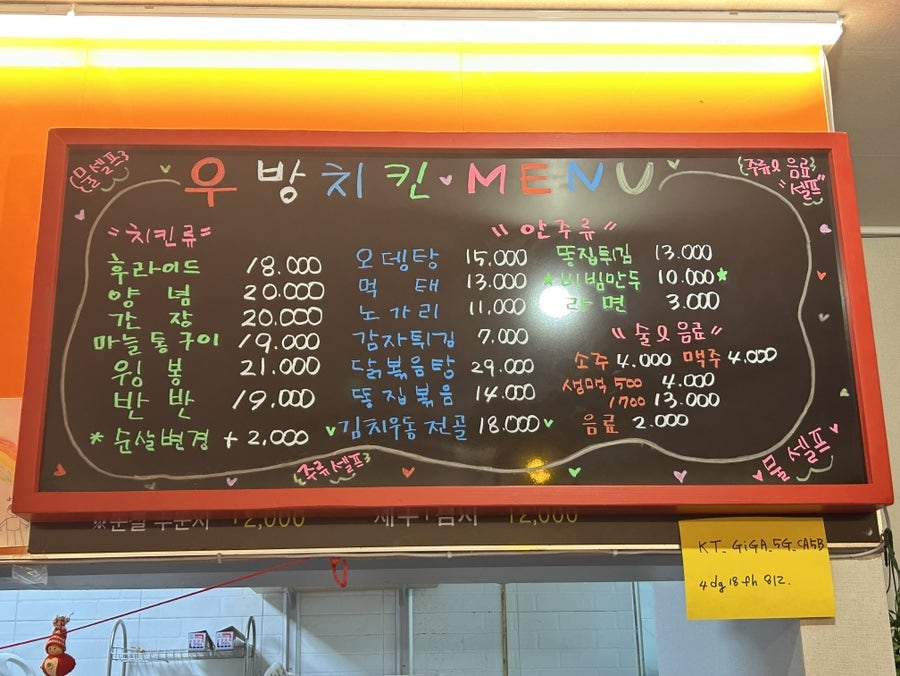 물셀프
우방치킨 MENU
주류&음료
"셀프"
"치킨류"
후라이드 18.000
양념 20.000
간장 20.000
마늘통구이 19.000
윙봉 21.000
반반 19.000
* 순살변경 + 2,000
"안주류"
오뎅탕 15,000
먹태 13.000
노가리 11,000
감자튀김 7.000
닭볶음탕 29.000
똥집볶음 14.000
김치우동전골 18.000
똥집튀김 13.000
비빔만두 10.000
라면 3.000
"술&음료"
소주 4.000 맥주 4.000
생맥 500 4.000
1700 13.000
음료 2.000
주류셀프
물셀프
+2,000 12,000
KT_GiGA_5G_CA5B
4dg18fh812.